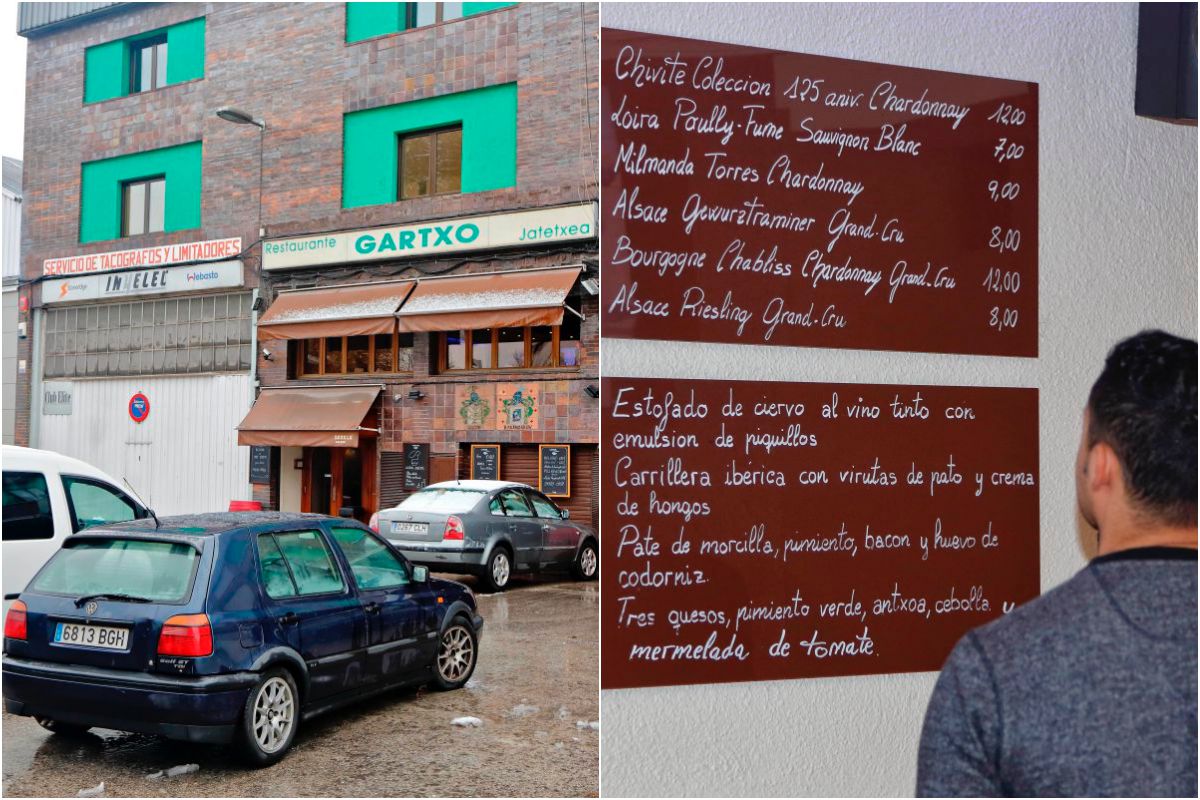 SERVICIO DE TACOGRAFOS Y LIMITADORES
INVELEC
Webasto
Restaurante GARTXO Jatetxea
Club Elite
6813 BGH
Golf GT
TDI
8267 CLH
Chivite Coleccion 125 aniv. Chardonnay 12,00
Loira Poully-Fume Sauvignon Blanc 7,00
Milmanda Torres Chardonnay 9,00
Alsace Gewurztraminer Grand-Cru 8,00
Bourgogne Chabliss Chardonnay Grand-Cru 12,00
Alsace Riesling Grand-Cru 8,00
Estofado de ciervo al vino tinto con
emulsion de piquillos
Carrillera ibérica con virutas de pato y crema
de hongos
Pate de morcilla, pimiento, bacon y huevo de
codorniz.
Tres quesos, pimiento verde, antxoa, cebolla y
mermelada de tomate.